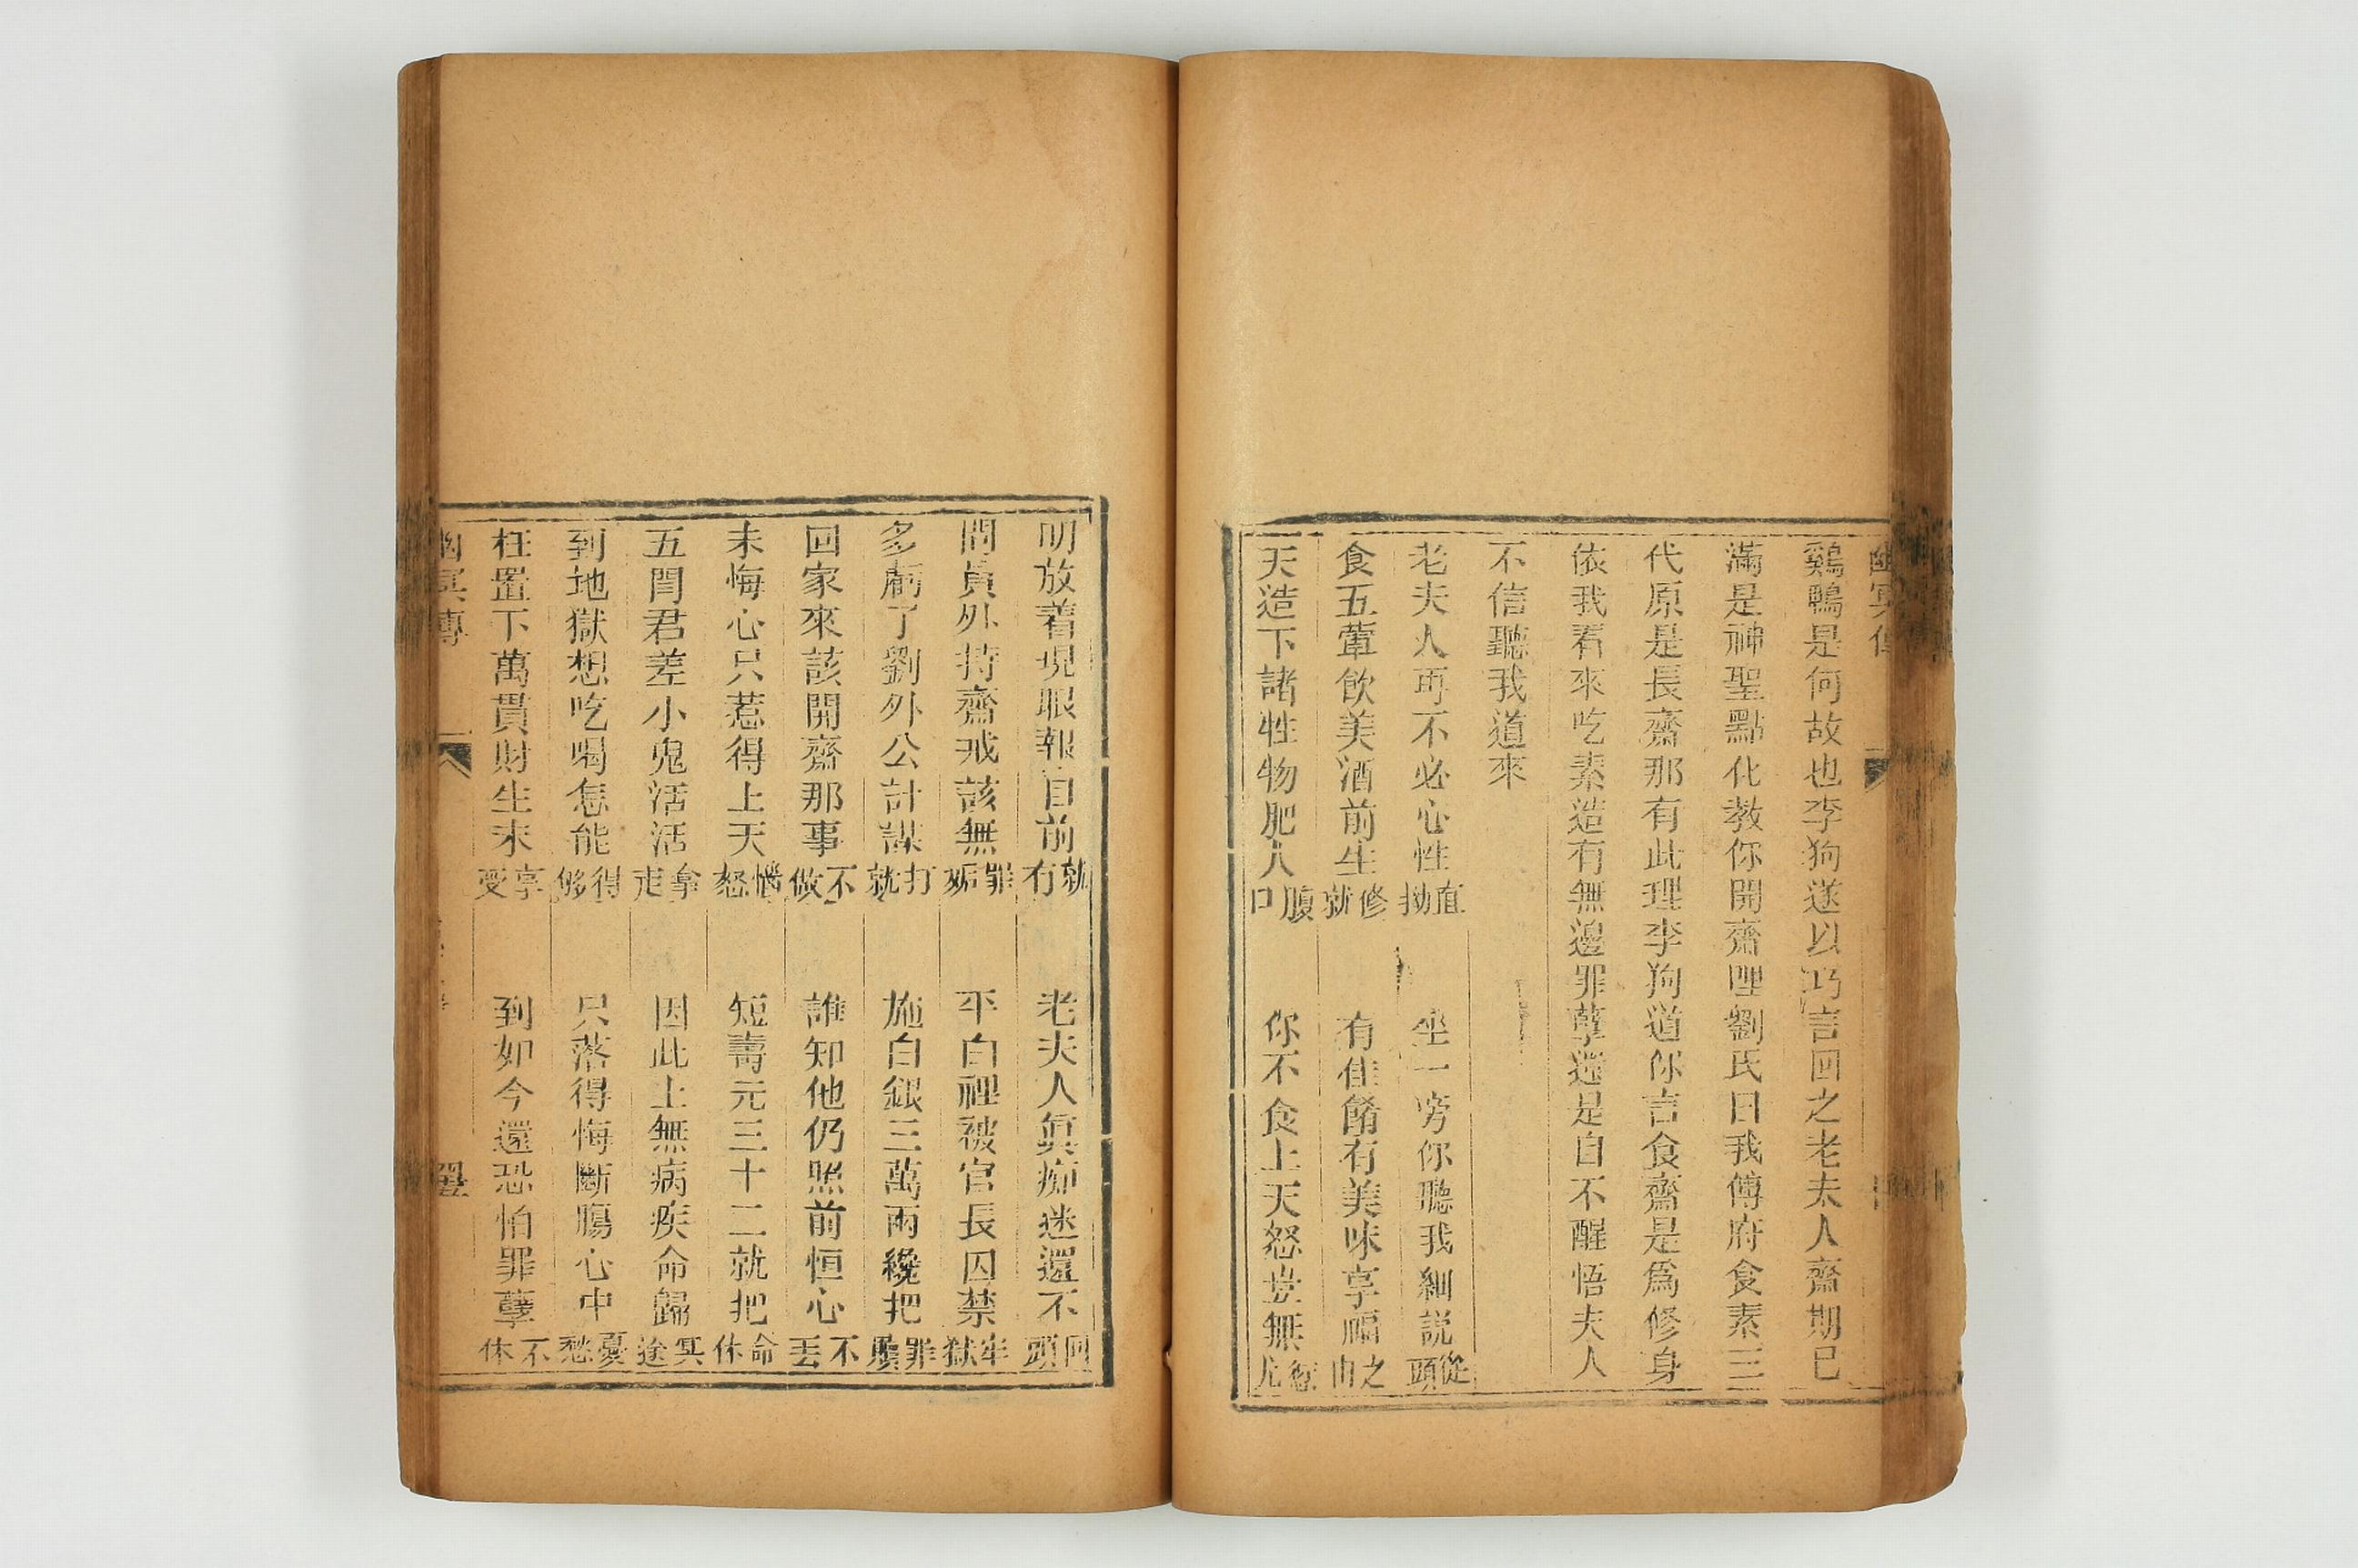 鷄鴨是何故也李狗遂以巧言回之老夫人齋期已
滿是神聖點化教你開齋哩劉氏曰我傅府食素三
代原是長齋那有此理李狗道你言食齋是爲修身
依我看來吃素造有無邊罪孽還是自不醒悟夫人
不信聽我道來
老夫人再不必心性直拗 坐一旁你聽我細説從頭
食五葷飲美酒前生修就 有佳餚有美味享福之由
天造下諸牲物肥人腹口 你不食上天怒豈無愆尤
明放着現眼報目前就有 老夫人眞痴迷還不回頭
問員外持齋戒該無罪姤 平白裡被官長囚禁牢獄
多虧了劉外公計謀打就 施白銀三萬兩纔把罪贖
回家來該開齋那事不做 誰知他仍照前恒心不丟
未悔心只惹得上天惱怒 短壽元三十二就把命休
五閆君差小鬼活活拿走 因此上無病疾命歸冥途
到地獄想吃喝怎能得够 只落得悔斷膓心中憂愁
枉置下萬貫財生來享受 到如今還恐怕罪孽不休
幽冥傳